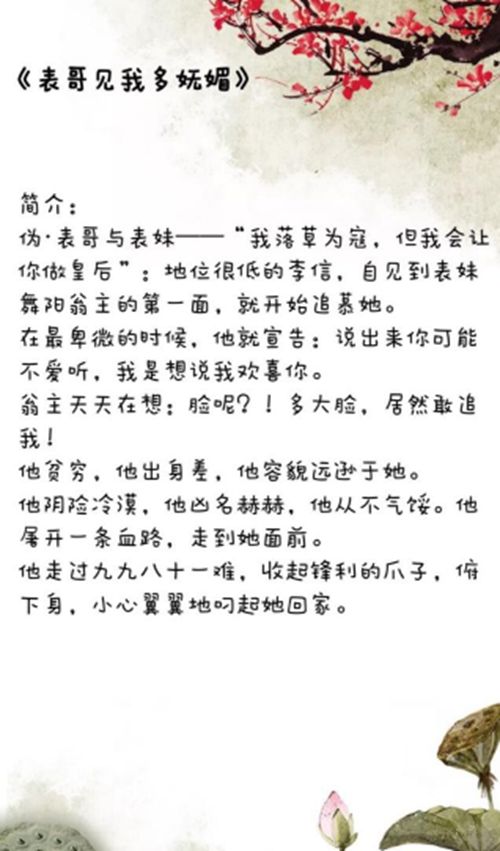 《表哥见我多妩媚》
简介：
伪·表哥与表妹——“我落草为寇，但我会让
你做皇后”：地位很低的李信，自见到表妹
舞阳翁主的第一面，就开始追慕她。
在最卑微的时候，他就宣告：说出来你可能
不爱听，我是想说我欢喜你。
翁主天天在想：脸呢？！多大脸，居然敢追
我！
他贫穷，他出身差，他容貌远逊于她。
他阴险冷漠，他凶名赫赫，他从不气馁。他
屠开一条血路，走到她面前。
他走过九九八十一难，收起锋利的爪子，俯
下身，小心翼翼地叼起她回家。